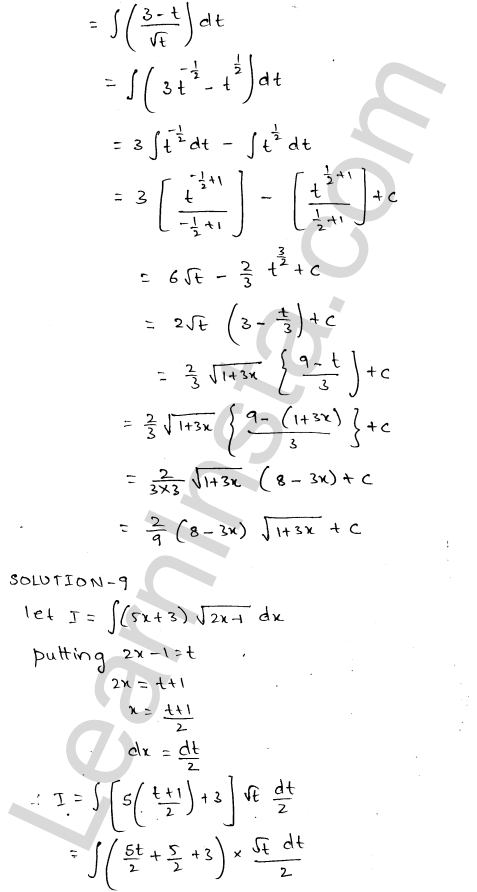 = ∫ ( (3 - t)/√t ) dt
= ∫ ( 3t^(-1/2) - t^(1/2) ) dt
= 3 ∫ t^(-1/2) dt - ∫ t^(1/2) dt
= 3 [ t^(-1/2+1) / (-1/2+1) ] - [ t^(1/2+1) / (1/2+1) ] + c
= 6√t - 2/3 t^(3/2) + c
= 2√t ( 3 - t/3 ) + c
= 2/3 √(1+3x) { (9 - t)/3 } + c
= 2/3 √(1+3x) { (9 - (1+3x))/3 } + c
= 2/(3×3) √(1+3x) (8 - 3x) + c
= 2/9 (8 - 3x) √(1+3x) + c
SOLUTION-9
let I = ∫ (5x+3) √(2x-1) dx
putting 2x - 1 = t
2x = t+1
x = (t+1)/2
dx = dt/2
∴ I = ∫ [ 5( (t+1)/2 ) + 3 ] √t dt/2
= ∫ ( 5t/2 + 5/2 + 3 ) × (√t dt)/2
LearnInsta.com